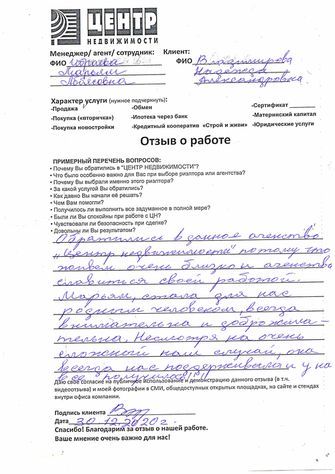 ЦЕНТР
НЕДВИЖИМОСТИ
Менеджер/ агент/ сотрудник: Клиент:
ФИО Юраева ФИО Владимирова
Марьям Надежда
Александровна
Характер услуги (нужное подчеркнуть):
-Продажа -Обмен -Сертификат
-Покупка (вторичка) -Ипотека через банк -Материнский капитал
-Покупка новостройки -Кредитный кооператив «Строй и живи» -Юридические услуги
Отзыв о работе
ПРИМЕРНЫЙ ПЕРЕЧЕНЬ ВОПРОСОВ:
• Почему Вы обратились в "ЦЕНТР НЕДВИЖИМОСТИ"?
• Что было особенно важно для Вас при выборе риэлтора или агентства?
• Почему Вы выбрали именно этого риэлтора?
• За какой услугой Вы обратились?
• Как давно Вы начали её решать?
• Чем Вам помогли?
• Получилось ли выполнить все задуманное в полной мере?
• Были ли Вы спокойны при работе с ЦН?
• Чувствовали ли безопасность при сделке?
• Довольны ли Вы результатом?
Обратились в данное агенство
„Центр недвижимости" потому что
живём очень близко и агенство
славиться своей работой.
Марьям, стала для нас
родным человеком, всегда
внимательна и доброжела-
тельна. Несмотря на очень
сложный наш случай, она
всегда нас поддерживала и у нас
все получилось!
Даю свое согласие на публичное использование и демонстрацию данного отзыва (в т.ч.
видеоотзыва) и моей фотографии в СМИ, общедоступных открытых площадках, на сайте и стендах
внутри офиса компании.
Подпись клиента
Дата 30.12.2020г.
Спасибо! Благодарим за отзыв о нашей работе.
Ваше мнение очень важно для нас!